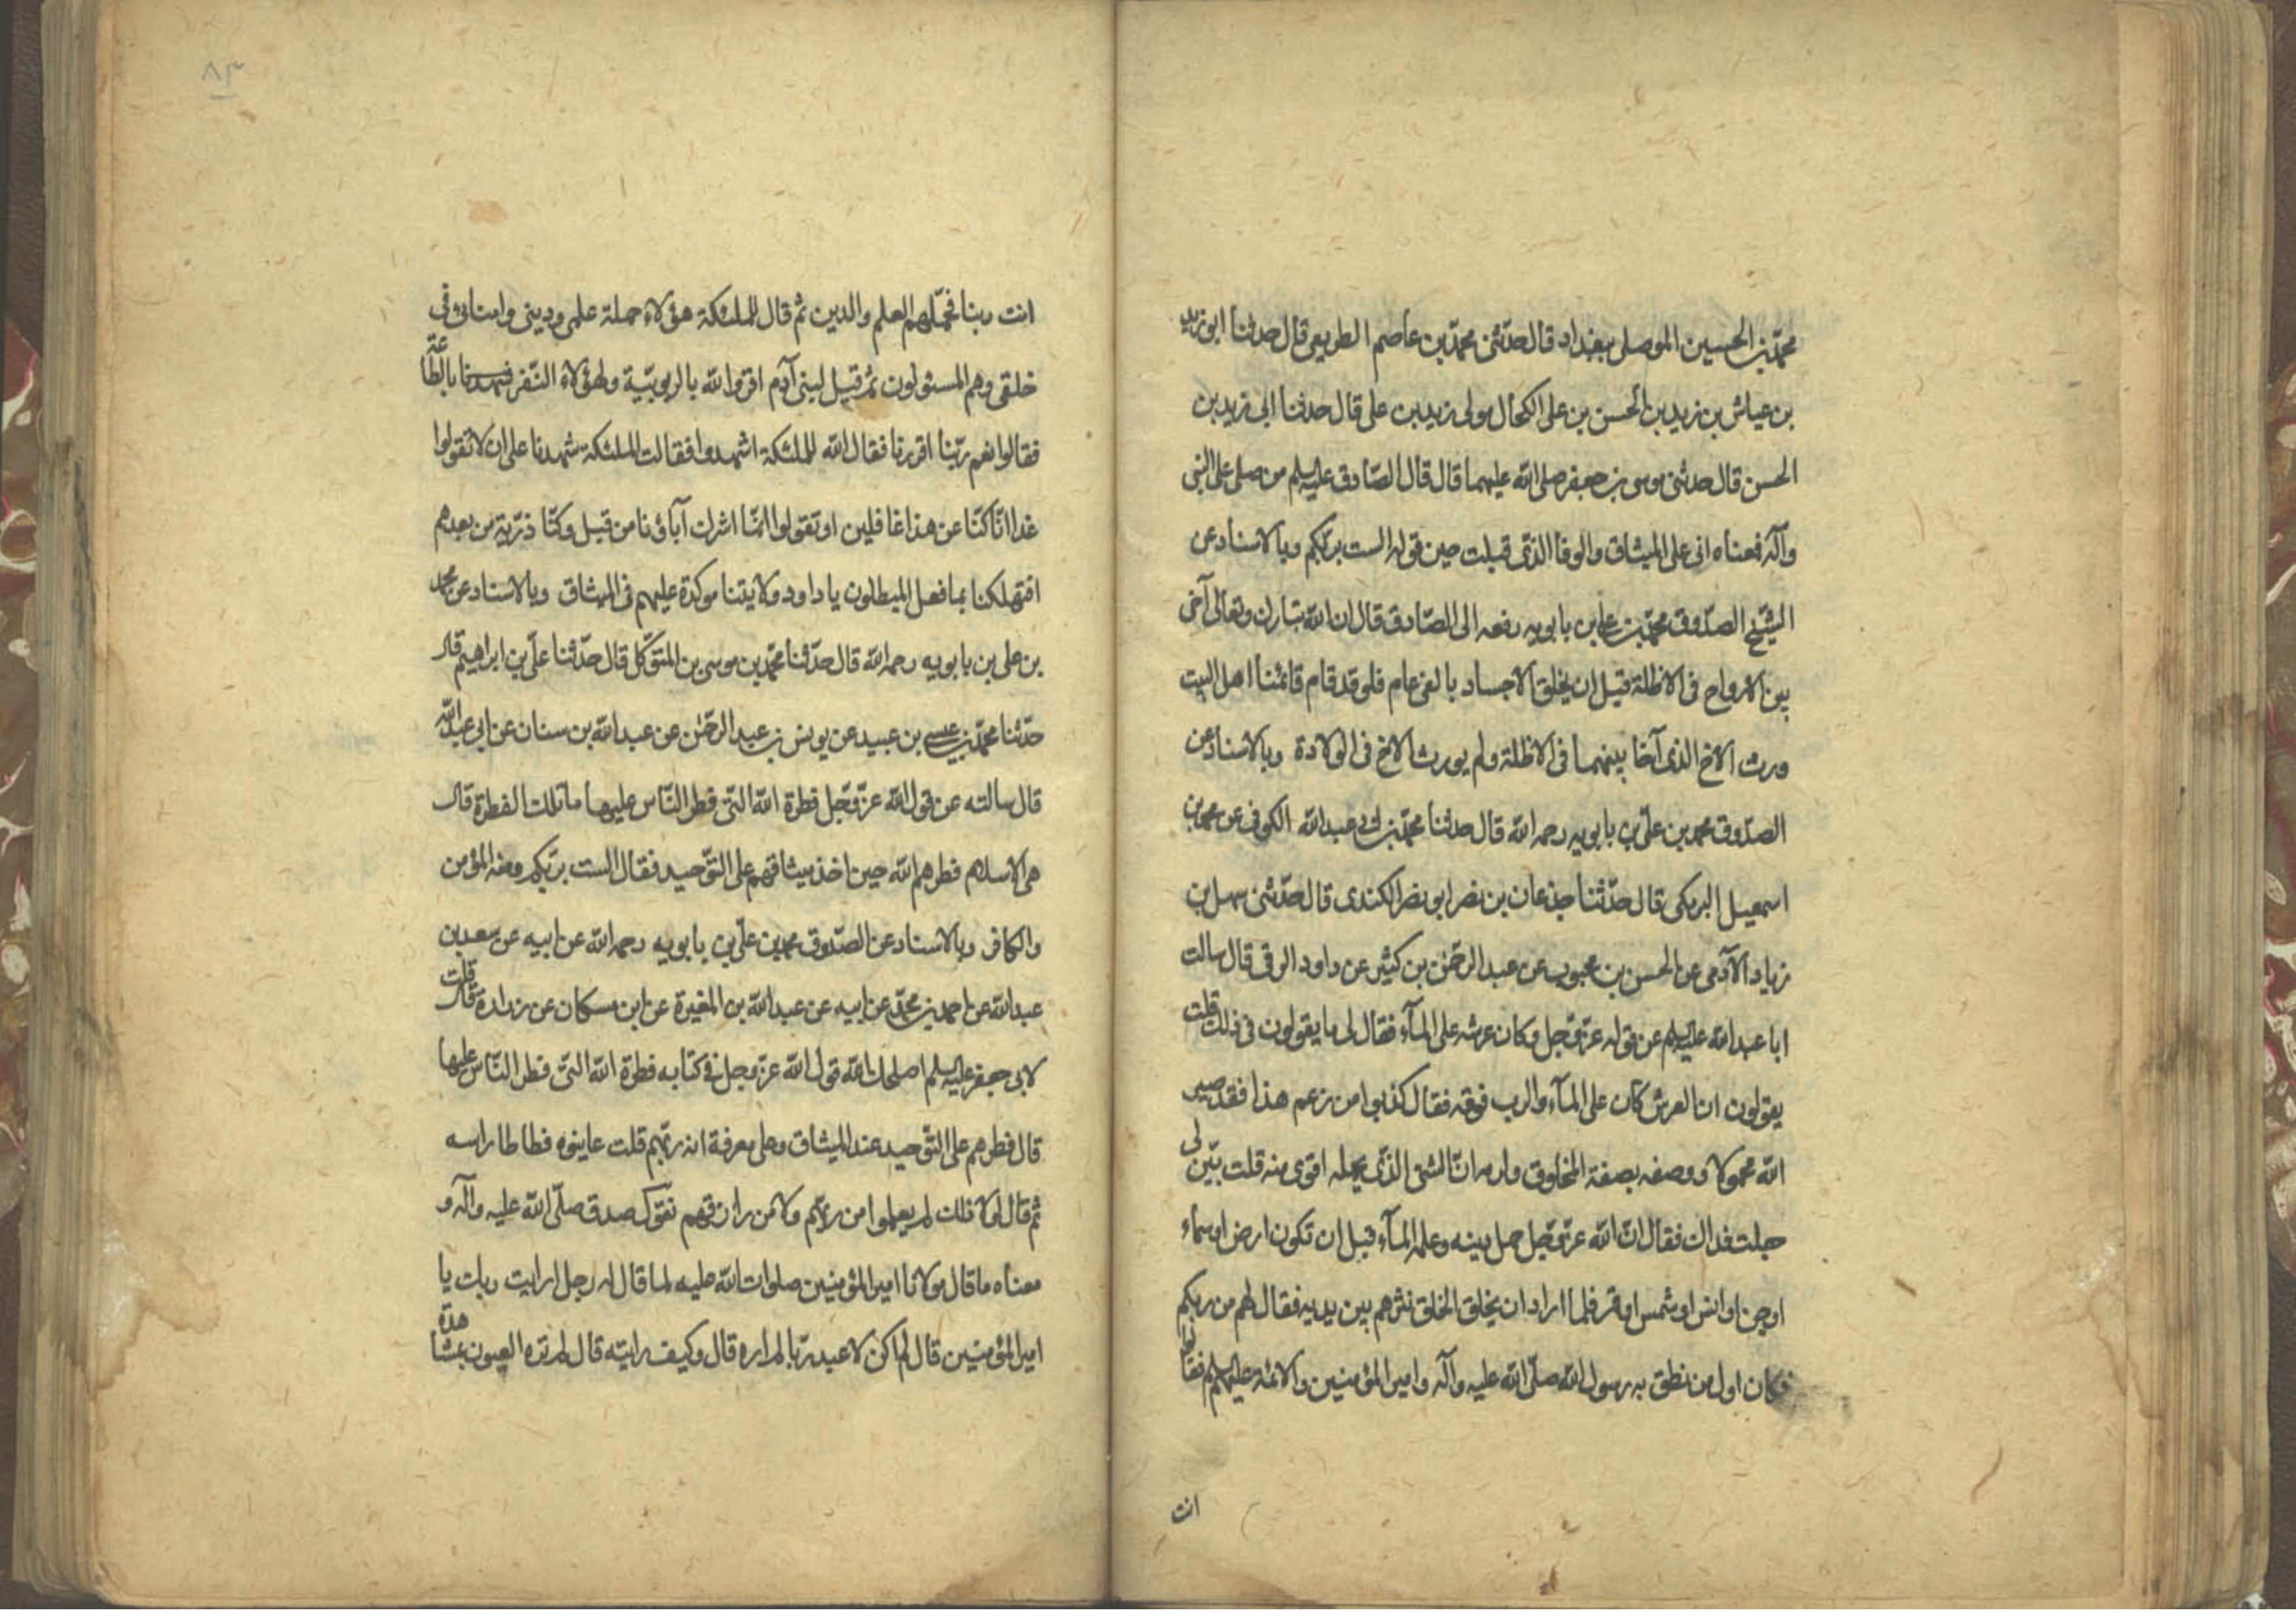 محمد بن الحسين الموصلى ببغداد قال حدثنى محمد بن عاصم الطريفى قال حدثنا ابو زيد
بن عياش بن زيد بن الحسن بن على الكحال مولى زيد بن على قال حدثنا ابى زيد بن
الحسن قال حدثنى موسى بن جعفر صلى الله عليهما قال قال الصادق عليه السلم من صلى على النبى
وآله فمعناه انى على الميثاق والوفا الذى قبلت حين قوله الست بربكم وبالاسناد عن
الشيخ الصدوق محمد بن على بن بابويه رفعه الى الصادق قال ان الله تبارك وتعالى آخى
بين الارواح فى الاظلة قبل ان يخلق الاجساد بالفى عام فلو قد قام قائمنا اهل البيت
ورث الاخ الذى آخا بينهما فى الاظلة ولم يورث الاخ فى الولادة وبالاسناد عن
الصدوق محمد بن على بن بابويه رحمه الله قال حدثنا محمد بن ابى عبد الله الكوفى عن محمد بن
اسمعيل البرمكى قال حدثنا جذعان بن نصر ابو نصر الكندى قال حدثنى سهل بن
زياد الآدمى عن الحسن بن محبوب عن عبد الرحمن بن كثير عن داود الرقى قال سالت
ابا عبد الله عليه السلم عن قوله عز وجل وكان عرشه على المآء فقال لى ما يقولون فى ذلك قلت
يقولون ان العرش كان على المآء والرب فوقه فقال كذبوا من زعم هذا فقد صير
الله محمولا ووصفه بصفة المخلوق ولزمه ان الشئ الذى يحمله اقوى منه قلت بين لى
جعلت فداك فقال ان الله عز وجل حمل دينه وعلمه المآء قبل ان تكون ارض او سماء
او جن او انس او شمس او قمر فلما اراد ان يخلق الخلق نثرهم بين يديه فقال لهم من ربكم
فكان اول من نطق به رسول الله صلى الله عليه وآله وامير المؤمنين والائمة عليهم السلم فقالوا
انت
٨٣
انت ربنا فحملهم العلم والدين ثم قال للملئكة هؤلاء حملة علمى ودينى وامنائى فى
خلقى وهم المسئولون ثم قيل لبنى آدم اقروا لله بالربوبية ولهؤلاء النفر بالطاعة
فقالوا نعم ربنا اقررنا فقال الله للملئكة اشهدوا فقالت الملئكة شهدنا على ان لا تقولوا
غدا انا كنا عن هذا غافلين او تقولوا انما اشرك آباؤنا من قبل وكنا ذرية من بعدهم
افتهلكنا بما فعل المبطلون يا داود ولايتنا موكدة عليهم فى الميثاق وبالاسناد عن محمد
بن على بن بابويه رحمه الله قال حدثنا محمد بن موسى بن المتوكل قال حدثنا على بن ابراهيم قال
حدثنا محمد بن عيسى بن عبيد عن يونس بن عبد الرحمن عن عبد الله بن سنان عن ابى عبد الله
قال سالته عن قول الله عز وجل فطرة الله التى فطر الناس عليها ما تلك الفطرة قال
هى الاسلام فطرهم الله حين اخذ ميثاقهم على التوحيد فقال الست بربكم وفيه المؤمن
والكافر وبالاسناد عن الصدوق محمد بن على بن بابويه رحمه الله عن ابيه عن سعد بن
عبد الله عن احمد بن محمد عن ابيه عن عبد الله بن المغيرة عن ابن مسكان عن زرارة قال قلت
لابى جعفر عليه السلم اصلحك الله قول الله عز وجل فى كتابه فطرة الله التى فطر الناس عليها
قال فطرهم على التوحيد عند الميثاق وعلى معرفة انه ربهم قلت عاينوه فطاطا راسه
ثم قال لولا ذلك لم يعلموا من ربهم ولا من رازقهم صدق صلى الله عليه وآله و
معناه ما قال مولانا امير المؤمنين صلوات الله عليه لما قال له رجل ارايت ربك يا
امير المؤمنين قال لم اكن لاعبد ربا لم اره قال وكيف رايته قال لم تره العيون بمشاهدة